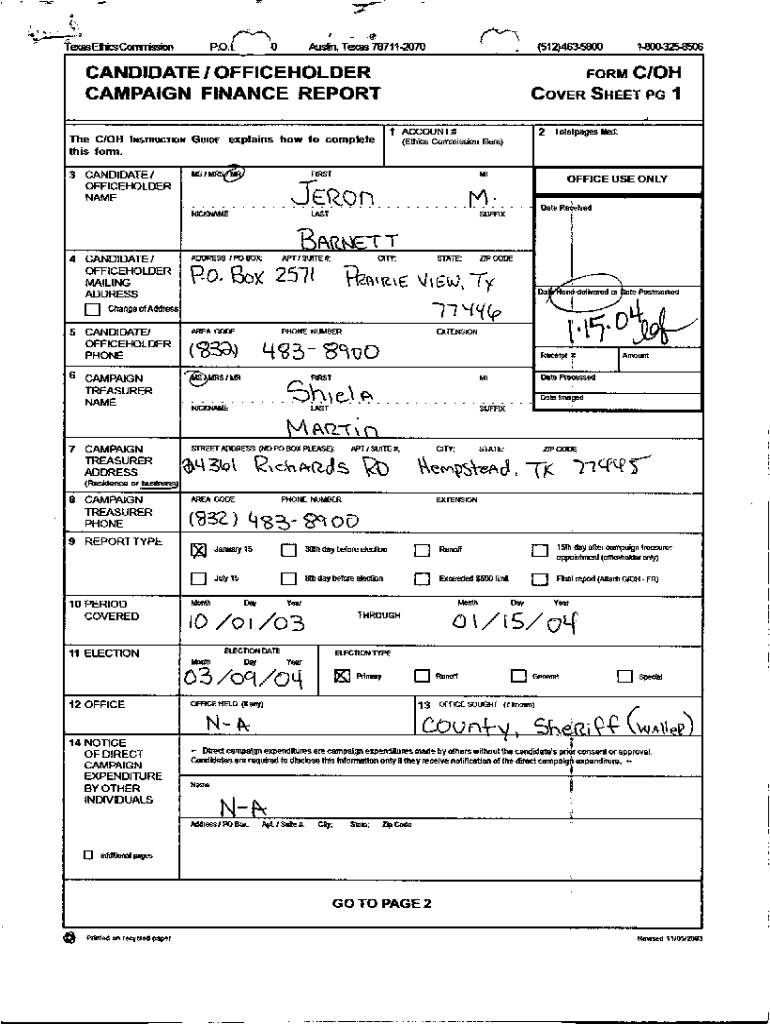 Texas Ethics Commission P.O. 0 Austin, Texas 78711-2070 (512)463-5800 1-800-325-8506
CANDIDATE / OFFICEHOLDER
CAMPAIGN FINANCE REPORT
FORM C/OH
COVER SHEET PG 1
The C/OH INSTRUCTION GUIDE explains how to complete
this form.
1 ACCOUNT #
(Ethics Commission filers)
2 Total pages filed:
3 CANDIDATE /
OFFICEHOLDER
NAME
MS / MRS / MR FIRST MI
JERON M.
NICKNAME LAST SUFFIX
BARNETT
OFFICE USE ONLY
Date Received
4 CANDIDATE /
OFFICEHOLDER
MAILING
ADDRESS
Change of Address
ADDRESS / PO BOX; APT / SUITE #; CITY; STATE; ZIP CODE
P.O. Box 2571 PRAIRIE VIEW, Tx
77446
Date Hand-delivered or Date Postmarked
1.15.04
5 CANDIDATE/
OFFICEHOLDER
PHONE
AREA CODE PHONE NUMBER EXTENSION
(832) 483-8900
Receipt # Amount
6 CAMPAIGN
TREASURER
NAME
MS / MRS / MR FIRST MI
Shiela
NICKNAME LAST SUFFIX
MARTin
Date Processed
Date Imaged
7 CAMPAIGN
TREASURER
ADDRESS
(Residence or business)
STREET ADDRESS (NO PO BOX PLEASE); APT / SUITE #; CITY; STATE; ZIP CODE
24361 RichARds RD Hempstead, TX 77445
8 CAMPAIGN
TREASURER
PHONE
AREA CODE PHONE NUMBER EXTENSION
(832) 483-8900
9 REPORT TYPE
January 15 30th day before election Runoff 15th day after campaign treasurer
appointment (officeholder only)
July 15 8th day before election Exceeded $500 limit Final report (Attach C/OH - FR)
10 PERIOD
COVERED
Month Day Year THROUGH Month Day Year
10/01/03 01/15/04
11 ELECTION
ELECTION DATE
Month Day Year
03/09/04
ELECTION TYPE
Primary Runoff General Special
12 OFFICE
OFFICE HELD (if any)
N-A
13 OFFICE SOUGHT (if known)
County, Sheriff (Waller)
14 NOTICE
OF DIRECT
CAMPAIGN
EXPENDITURE
BY OTHER
INDIVIDUALS
additional pages
-- Direct campaign expenditures are campaign expenditures made by others without the candidate's prior consent or approval.
Candidates are required to disclose this information only if they receive notification of the direct campaign expenditure. --
Name
N-A
Address / PO Box; Apt. / Suite #; City; State; Zip Code
GO TO PAGE 2
Printed on recycled paper Revised 11/05/2003